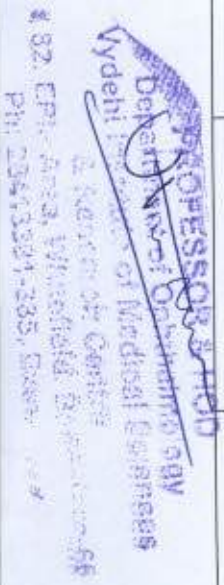 PROFESSOR & HOD
Department of Ophthalmology
Vydehi Institute of Medical Sciences
& Research Centre
# 82, EPIP Area, Whitefield, Bangalore-66
Ph: